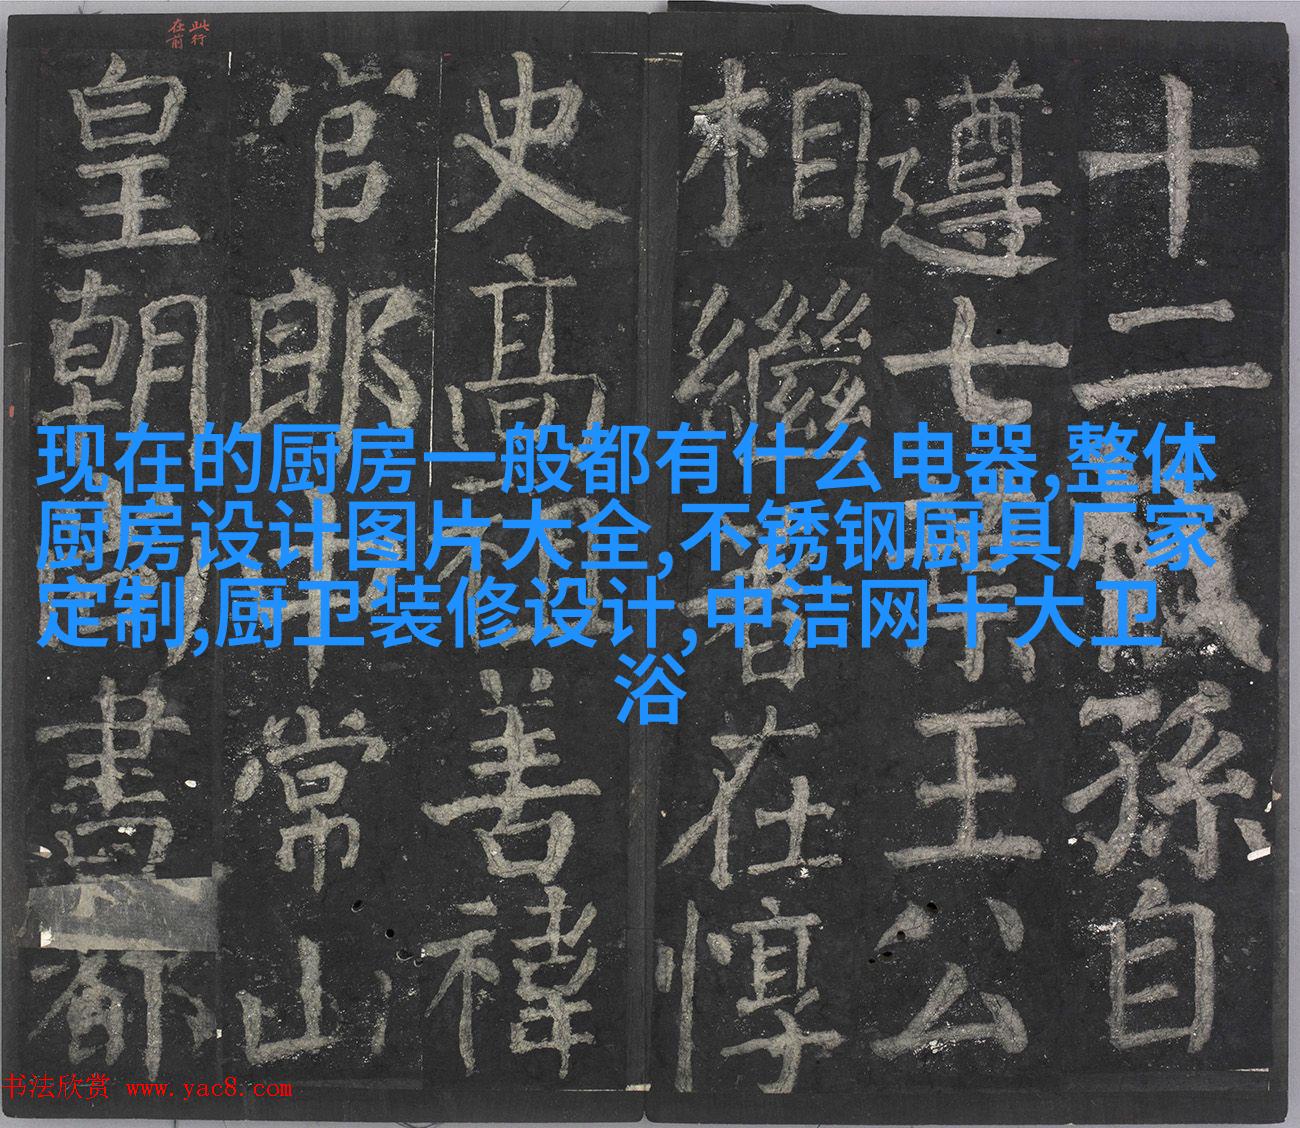 此行
在前
十二孫自
遵七王公
相繼者在惇
史高善禕
官郎常山
皇朝尚書都
现在的厨房一般都有什么电器,整体
厨房设计图片大全,不锈钢厨具厂家
定制,厨卫装修设计,中洁网十大卫
浴
书法欣赏 www.yac8.com